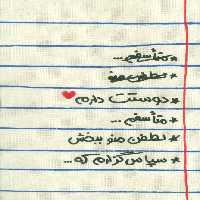 *متأسفم...
*لطفن منو
*دوستت دارم ❤
*متأسفم...
*لطفن منو ببخش
*سپاس گزارم که...